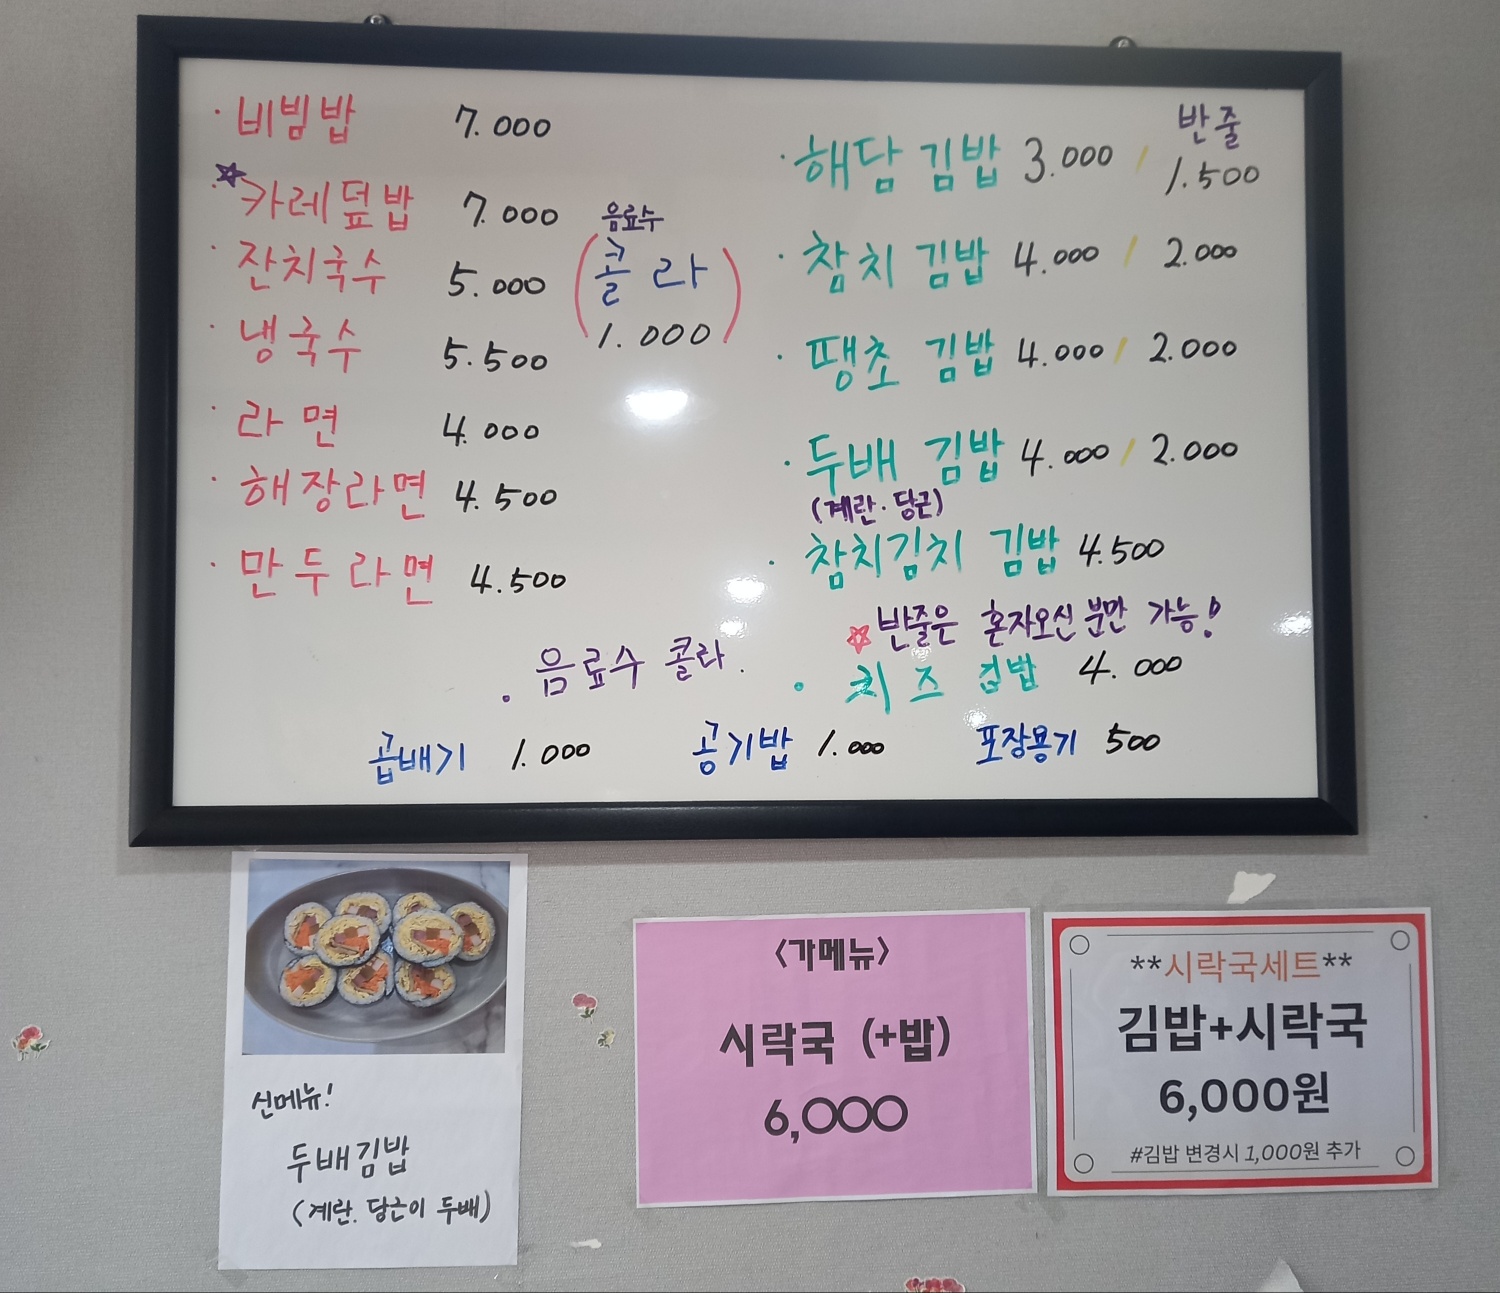 · 비빔밥 7.000
· 카레덮밥 7.000
· 잔치국수 5.000
· 냉국수 5.500
· 라면 4.000
· 해장라면 4.500
· 만두라면 4.500
음료수
(콜라
1.000)
반줄
· 해담 김밥 3.000 / 1.500
· 참치 김밥 4.000 / 2.000
· 땡초 김밥 4.000 / 2.000
· 두배 김밥 4.000 / 2.000
(계란·당근)
· 참치김치 김밥 4.500
☆ 반줄은 혼자오신 분만 가능!
· 치즈 김밥 4.000
· 음료수 콜라.
곱배기 1.000 공기밥 1.000 포장용기 500
신메뉴!
두배김밥
(계란. 당근이 두배)
<가메뉴>
시락국 (+밥)
6,000
**시락국세트**
김밥+시락국
6,000원
#김밥 변경시 1,000원 추가